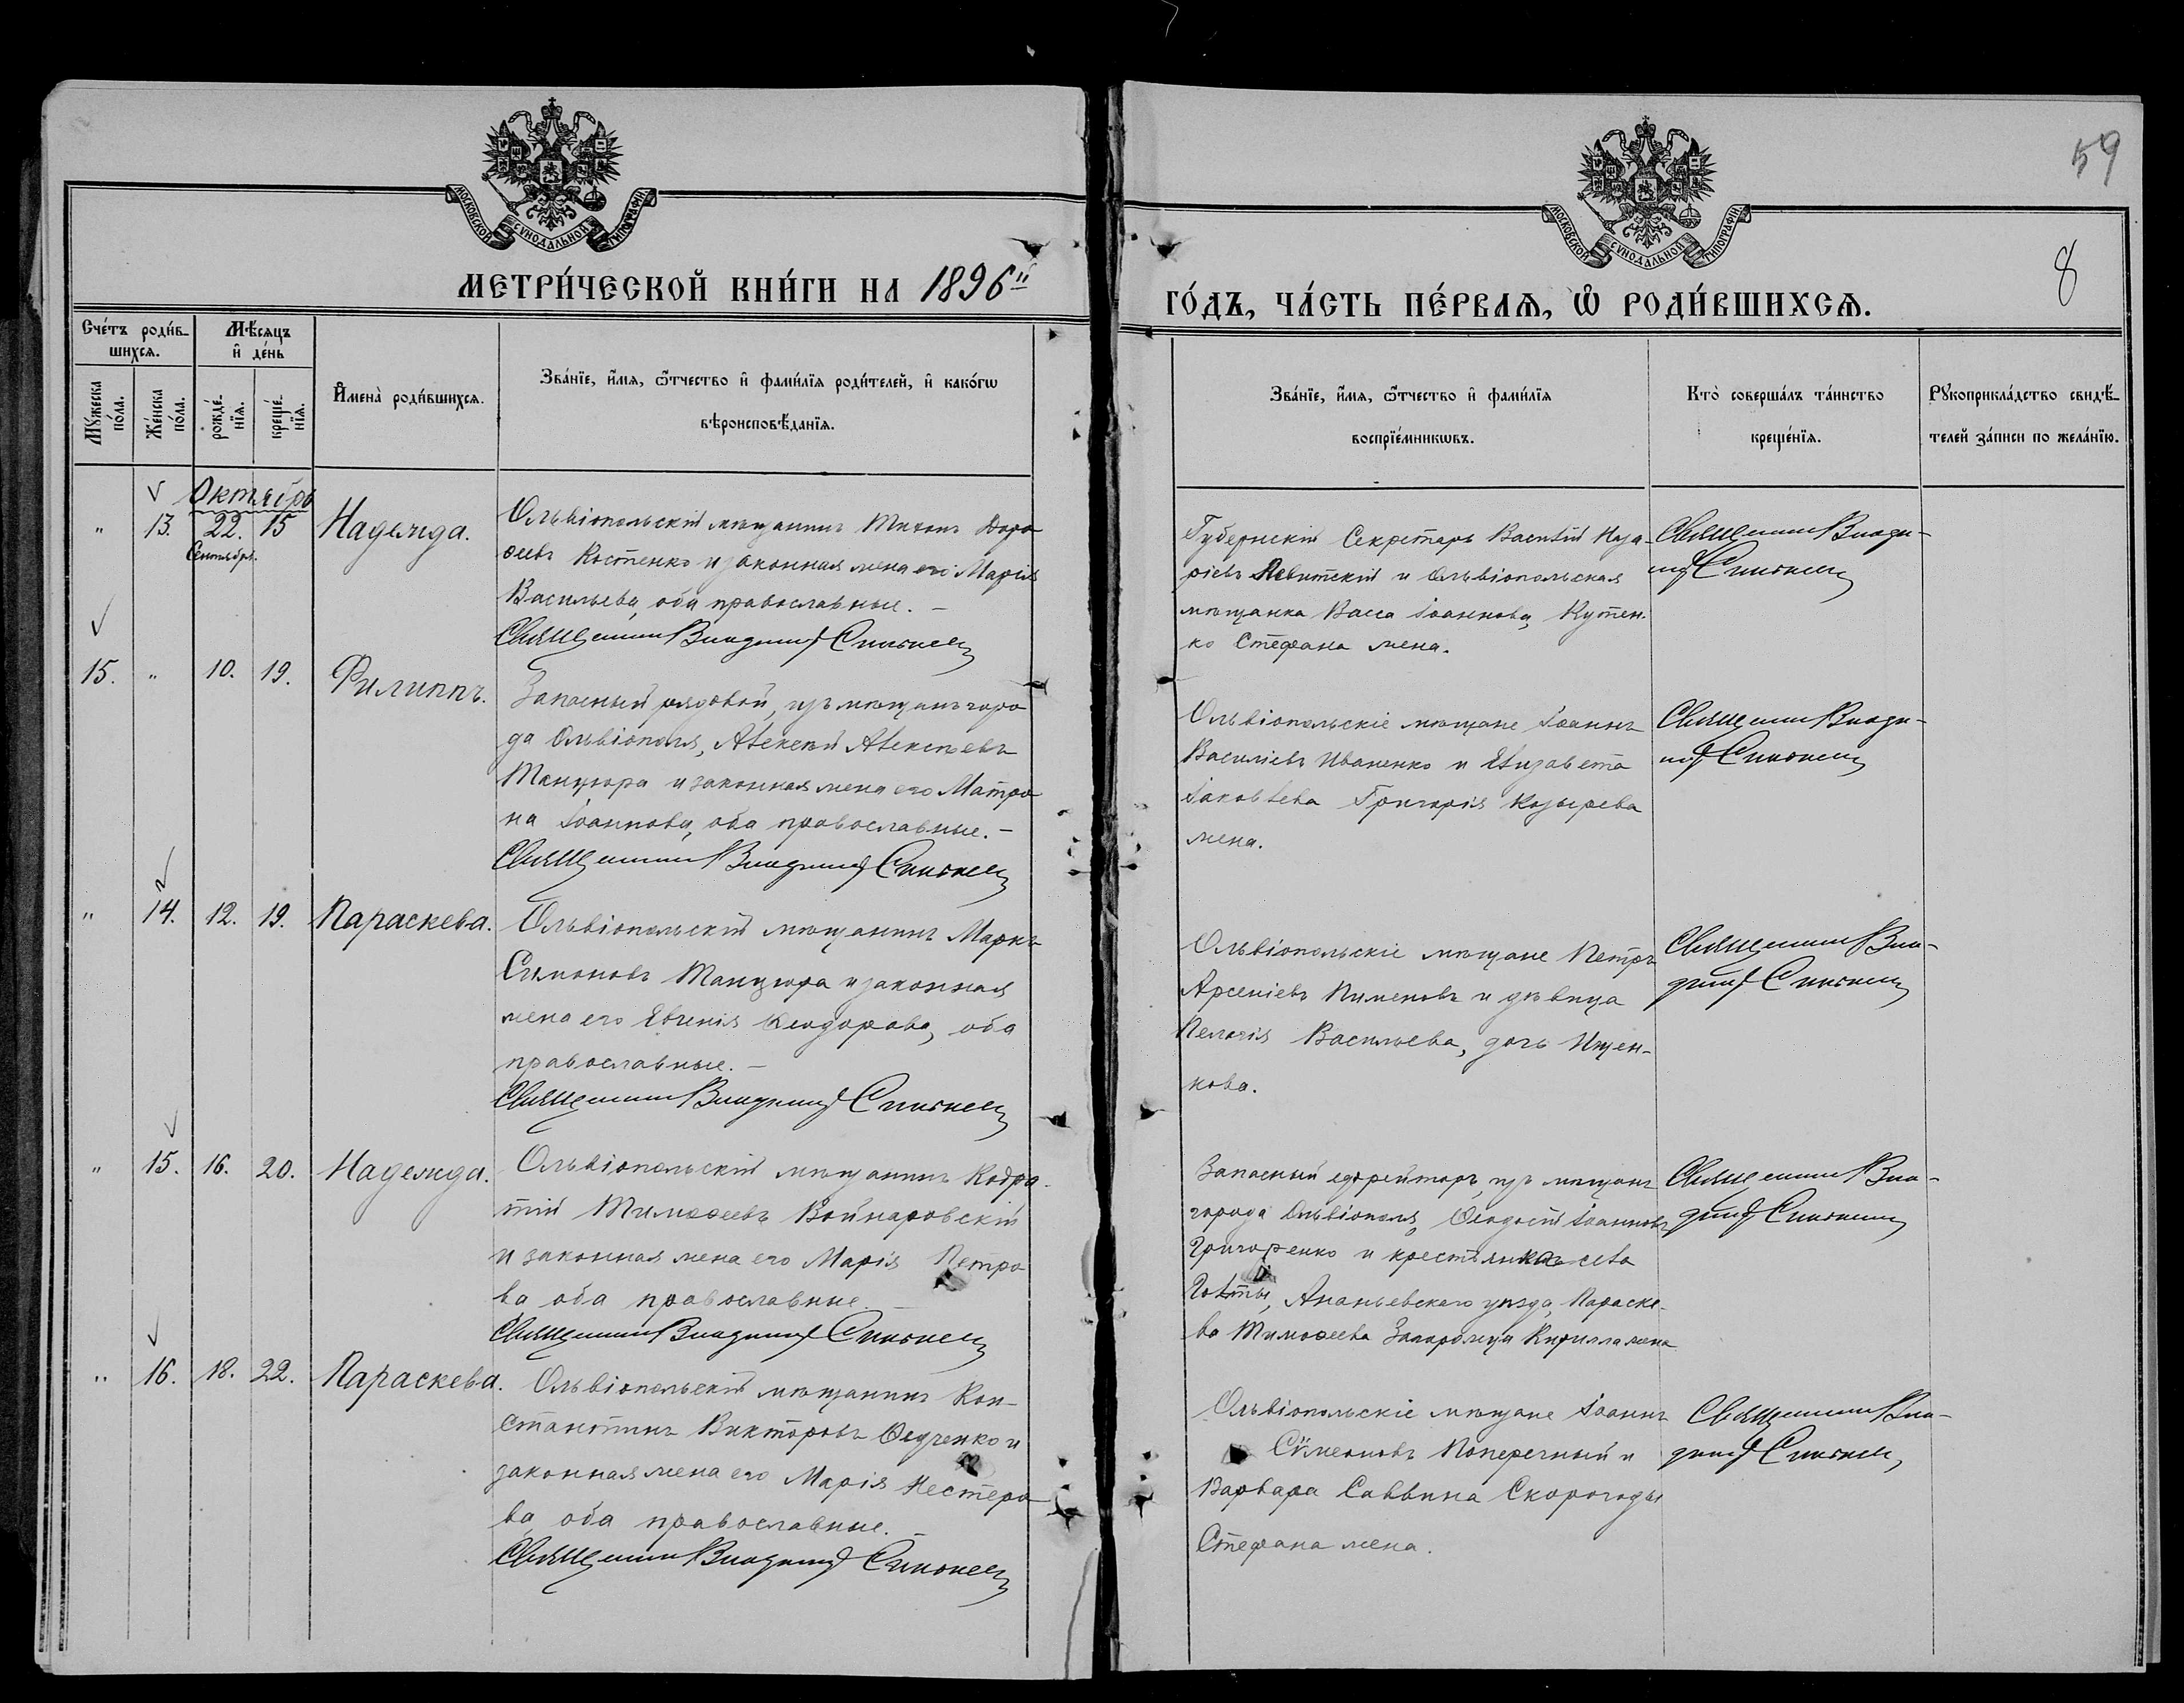 59
8
МОСКОВСКОЙ СѴНОДАЛЬНОЙ ТИПОГРАФІИ.
МОСКОВСКОЙ СѴНОДАЛЬНОЙ ТИПОГРАФІИ.
МЕТРИ́ЧЕСКОЙ КНИ́ГИ НА 1896й
ГО́ДЪ, ЧА́СТЬ ПЕ́РВАѦ, Ѡ҆ РОДИ́ВШИХСѦ.
Сче́тъ роди́в-
шихсѧ.
Мѣ́сѧцъ
и҆ де́нь
Мꙋ́жеска
по́ла.
Же́нска
по́ла.
рожде́-
нїѧ.
креще́-
нїѧ.
И҆мена̀ роди́вшихсѧ.
Зва́нїе, и҆́мѧ, ѻ҆́тчество и҆ фами́лїѧ роди́телей, и҆ како́гѡ
вѣроисповѣ́данїѧ.
Зва́нїе, и҆́мѧ, ѻ҆́тчество и҆ фами́лїѧ
воспрїе́мникѡвъ.
Кто̀ соверша́лъ та́инство
креще́нїѧ.
Рꙋкоприкла́дство свидѣ́-
телей за́писи по жела́нїю.
Октябрь
" 13. 22. 15 Надежда.
Сентября.
Ольвіопольскій мѣщанинъ Тихонъ Доро
ѳеевъ Костенко и законная жена его Марія
Васильева, оба православные. –
Священникъ Владимиръ
Губернскій Секретарь Василій Наза-
ріевъ Левитскій и Ольвіопольская
мѣщанка Васса Іоаннова, Кутен-
ко Стефана жена.
Священникъ Влади-
міръ
15. " 10. 19. Филиппъ.
Запасный рядовой, изъ мѣщанъ горо
да Ольвіополя, Алексѣй Алексѣевъ
Танцюра и законная жена его Матро
на Іоаннова, оба православные. –
Священникъ Владимиръ
Ольвіопольскіе мѣщане Іоаннъ
Василіевъ Иваненко и Елизавета
Іаковлева Григорія Козырева
жена.
Священникъ Влади-
міръ
" 14. 12. 19. Параскева.
Ольвіопольскій мѣщанинъ Маркъ
Симоновъ Танцюра и законная
жена его Евгенія Ѳеодорова, оба
православные. –
Священникъ Владимиръ
Ольвіопольскіе мѣщане Петръ
Арсеніевъ Пименовъ и дѣвица
Пелагія Васильева, дочь Ищен-
кова.
Священникъ Вла-
димиръ
" 15. 16. 20. Надежда.
Ольвіопольскій мѣщанинъ Кодра-
тій Тимоѳеевъ Войнаровскій
и законная жена его Марія Петро
ва оба православные. –
Священникъ Владимиръ
Запасный ефрейторъ, изъ мѣщанъ
города Ольвіополя, Ѳеодосій Іоанновъ
Григоренко и крестьянка села
Голты, Ананьевскаго уѣзда, Параске-
ва Тимоѳеева Кирилла жена
Священникъ Вла-
димиръ
" 16. 18. 22. Параскева.
Ольвіопольскій мѣщанинъ Кон-
стантинъ Викторовъ Ѳедченко и
законная жена его Марія Нестеро
ва, оба православные. –
Священникъ Владимиръ
Ольвіопольскіе мѣщане Іоаннъ
Сѵмеоновъ Поперечный и
Варвара Саввина Скорогоды
Стефана жена.
Священникъ Вла-
димиръ